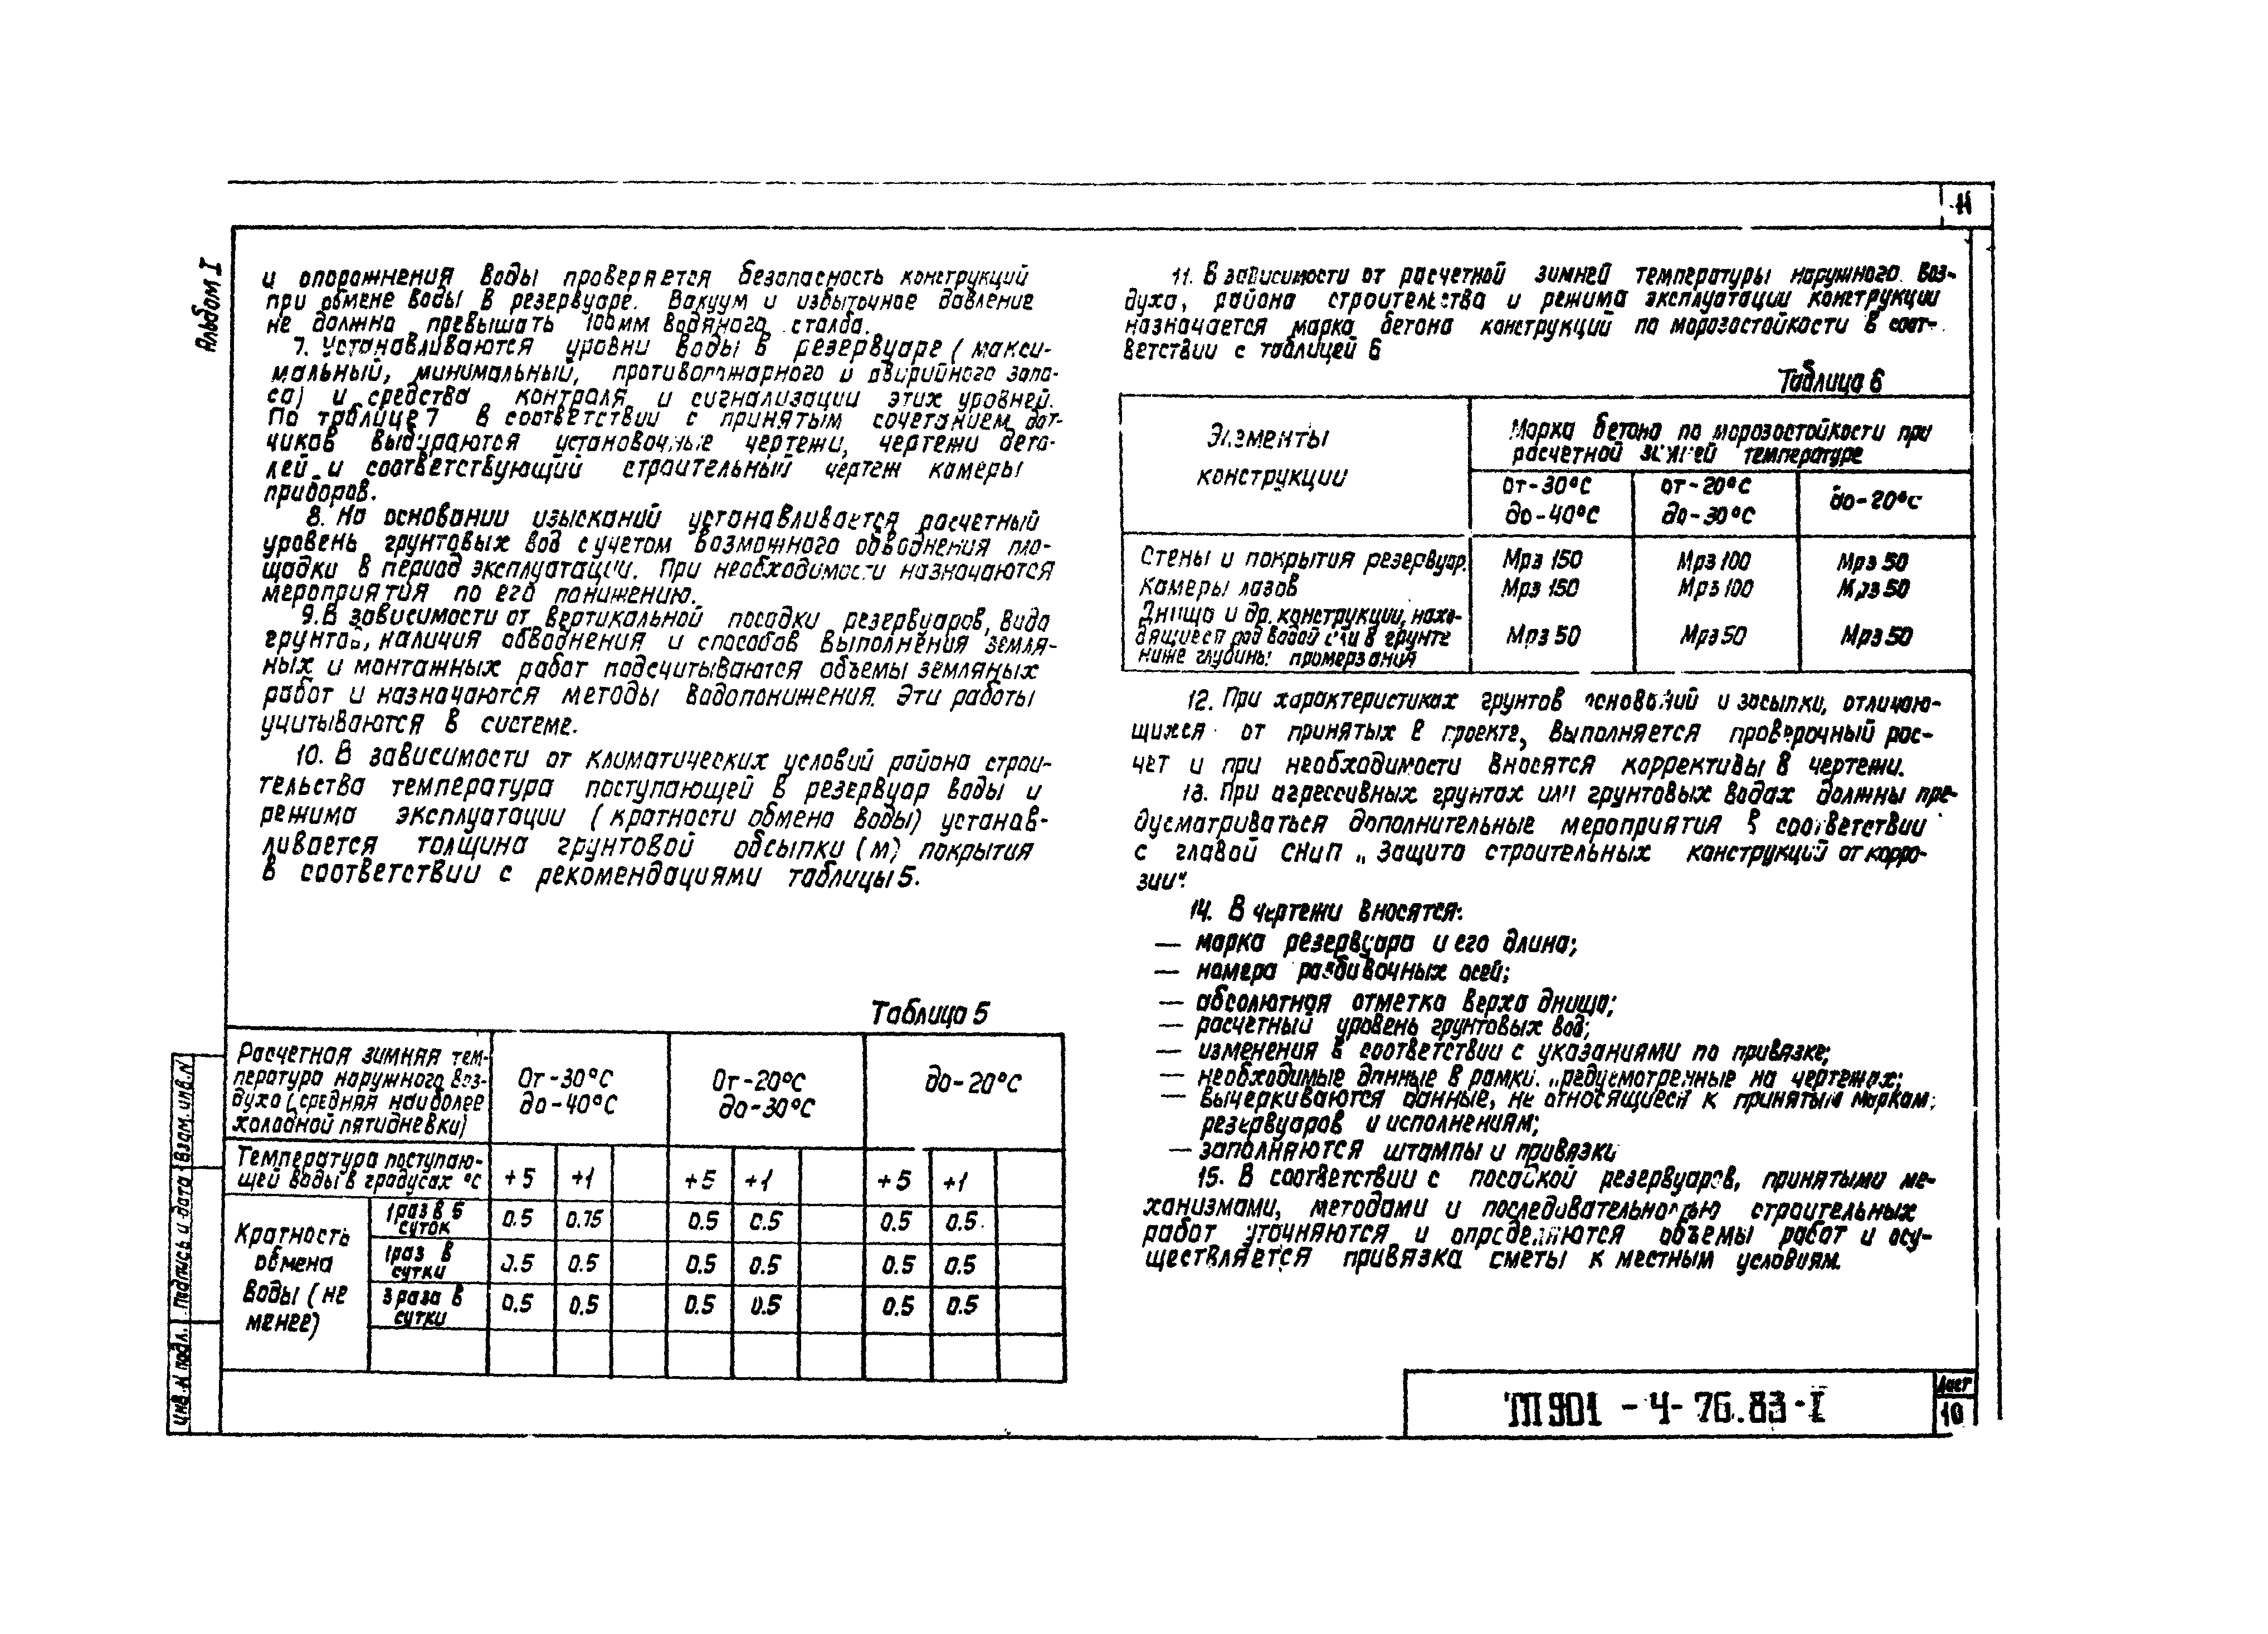 11
Альбом I
и опорожнения воды проверяется безопасность конструкций
при обмене воды в резервуаре. Вакуум и избыточное давление
не должно превышать 100мм водяного столба.
7. Устанавливаются уровни воды в резервуаре (макси-
мальный, минимальный, противопожарного и аварийного запа-
са) и средства контроля и сигнализации этих уровней.
По таблице 7 в соответствии с принятым сочетанием дат-
чиков выбираются установочные чертежи, чертежи дета-
лей и соответствующий строительный чертеж камеры
приборов.
8. На основании изысканий устанавливается расчетный
уровень грунтовых вод с учетом возможного обводнения пло-
щадки в период эксплуатации. При необходимости назначаются
мероприятия по его понижению.
9. В зависимости от вертикальной посадки резервуаров, вида
грунтов, наличия обводнения и способов выполнения земля-
ных и монтажных работ подсчитываются объемы земляных
работ и назначаются методы водопонижения. Эти работы
учитываются в системе.
10. В зависимости от климатических условий района строи-
тельства температура поступающей в резервуар воды и
режима эксплуатации (кратности обмена воды) устанав-
ливается толщина грунтовой обсыпки (м) покрытия
в соответствии с рекомендациями таблицы 5.
Таблица 5
Расчетная зимняя тем-
пература наружного воз-
духа (средняя наиболее
холодной пятидневки)
От -30°С
до -40°С
От -20°С
до -30°С
до -20°С
Температура поступаю-
щей воды в градусах °С
+5 +1 +5 +1 +5 +1
Кратность
обмена
воды (не
менее)
1 раз в 5
суток
0.5 0.75 0.5 0.5 0.5 0.5
1 раз в
сутки
0.5 0.5 0.5 0.5 0.5 0.5
3 раза в
сутки
0.5 0.5 0.5 0.5 0.5 0.5
11. В зависимости от расчетной зимней температуры наружного воз-
духа, района строительства и режима эксплуатации конструкции
назначается марка бетона конструкций по морозостойкости в соот-
ветствии с таблицей 6
Таблица 6
Элементы
конструкции
Марка бетона по морозостойкости при
расчетной зимней температуре
от -30°С
до -40°С
от -20°С
до -30°С
до -20°С
Стены и покрытия резервуар. Мрз 150 Мрз 100 Мрз 50
Камеры лазов Мрз 150 Мрз 100 Мрз 50
Днища и др. конструкции, нахо-
дящиеся под водой или в грунте
ниже глубины промерзания
Мрз 50 Мрз 50 Мрз 50
12. При характеристиках грунтов оснований и засыпки, отличаю-
щихся от принятых в проекте, выполняется проверочный рас-
чет и при необходимости вносятся коррективы в чертежи.
13. При агрессивных грунтах или грунтовых водах должны пре-
дусматриваться дополнительные мероприятия в соответствии
с главой СНиП „Защита строительных конструкций от корро-
зии".
14. В чертежи вносятся:
— марка резервуара и его длина;
— номера разбивочных осей;
— абсолютная отметка верха днища;
— расчетный уровень грунтовых вод;
— изменения в соответствии с указаниями по привязке;
— необходимые данные в рамки предусмотренные на чертежах;
— вычеркиваются данные, не относящиеся к принятым маркам
резервуаров и исполнениям;
— заполняются штампы и привязки
15. В соответствии с посадкой резервуаров, принятыми ме-
ханизмами, методами и последовательностью строительных
работ уточняются и определяются объемы работ и осу-
ществляется привязка сметы к местным условиям.
Инв. N подл.
Подпись и дата
Взам. инв. N
ТП 901 - 4 - 76.83 - I
Лист
10